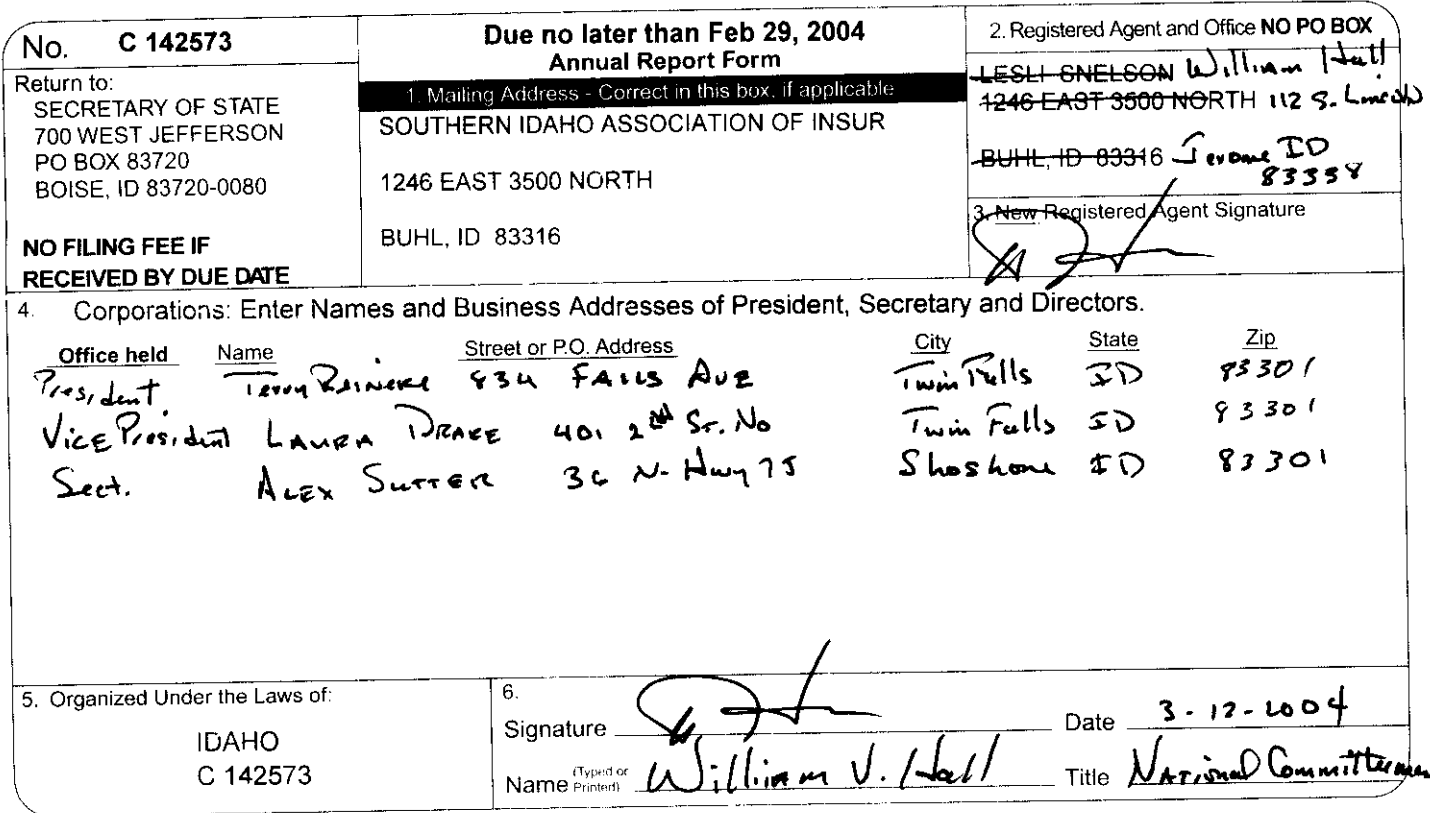 No. C 142573
Return to:
SECRETARY OF STATE
700 WEST JEFFERSON
PO BOX 83720
BOISE, ID 83720-0080
NO FILING FEE IF
RECEIVED BY DUE DATE
Due no later than Feb 29, 2004
Annual Report Form
1. Mailing Address - Correct in this box, if applicable
SOUTHERN IDAHO ASSOCIATION OF INSUR
1246 EAST 3500 NORTH
BUHL, ID 83316
2. Registered Agent and Office NO PO BOX
LESLI SNELSON William Hall
1246 EAST 3500 NORTH 112 S. Lincoln
BUHL, ID 83316 Jerome ID
83338
3. New Registered Agent Signature
4. Corporations: Enter Names and Business Addresses of President, Secretary and Directors.
Office held Name Street or P.O. Address City State Zip
President Terry Reineke 834 FALLS AVE Twin Falls ID 83301
Vice President LAURA DRAKE 401 2nd St. No Twin Falls ID 83301
Sect. ALEX SUTTER 36 N. Hwy 75 Shoshone ID 83301
5. Organized Under the Laws of:
IDAHO
C 142573
6.
Signature Date 3-12-2004
Name (Typed or Printed) William V. Hall Title National Committeeman